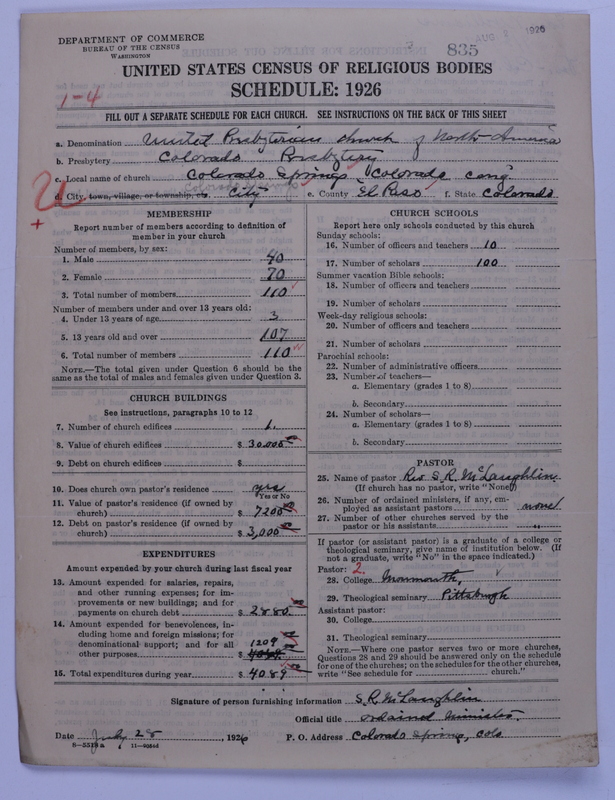 DEPARTMENT OF COMMERCE
BUREAU OF THE CENSUS
WASHINGTON
835
1926
UNITED STATES CENSUS OF RELIGIOUS BODIES
SCHEDULE: 1926
1-4
FILL OUT A SEPARATE SCHEDULE FOR EACH CHURCH. SEE INSTRUCTIONS ON THE BACK OF THIS SHEET
a. Denomination United Presbyterian Church of North America
b. Presbytery Colorado Presbytery
c. Local name of church Colorado Springs, Colorado Cong.
d. City, town, village, or township, City e. County El Paso f. State Colorado
MEMBERSHIP
Report number of members according to definition of member in your church
Number of members, by sex:
1. Male 40
2. Female 70
3. Total number of members 110
Number of members under and over 13 years old:
4. Under 13 years of age 3
5. 13 years old and over 107
6. Total number of members 110
NOTE.—The total given under Question 6 should be the same as the total of males and females given under Question 3.
CHURCH BUILDINGS
See instructions, paragraphs 10 to 12
7. Number of church edifices 1.
8. Value of church edifices $ 30,000
9. Debt on church edifices $
10. Does church own pastor's residence yes
Yes or No
11. Value of pastor's residence (if owned by church) $ 7200
12. Debt on pastor's residence (if owned by church) $ 3,000
EXPENDITURES
Amount expended by your church during last fiscal year
13. Amount expended for salaries, repairs, and other running expenses; for improvements or new buildings; and for payments on church debt $ 2880
14. Amount expended for benevolences, including home and foreign missions; for denominational support; and for all other purposes $ 1209
15. Total expenditures during year $ 4089
CHURCH SCHOOLS
Report here only schools conducted by this church
Sunday schools:
16. Number of officers and teachers 10
17. Number of scholars 100
Summer vacation Bible schools:
18. Number of officers and teachers
19. Number of scholars
Week-day religious schools:
20. Number of officers and teachers
21. Number of scholars
Parochial schools:
22. Number of administrative officers
23. Number of teachers—
a. Elementary (grades 1 to 8)
b. Secondary
24. Number of scholars—
a. Elementary (grades 1 to 8)
b. Secondary
PASTOR
25. Name of pastor Rev S. R. McLaughlin
(If church has no pastor, write "None")
26. Number of ordained ministers, if any, employed as assistant pastors none
27. Number of other churches served by the pastor or his assistants "
If pastor (or assistant pastor) is a graduate of a college or theological seminary, give name of institution below. (If not a graduate, write "No" in the space indicated.)
Pastor: 2.
28. College Monmouth,
29. Theological seminary Pittsburgh
Assistant pastor:
30. College
31. Theological seminary
NOTE.—Where one pastor serves two or more churches, Questions 28 and 29 should be answered only on the schedule for one of the churches; on the schedules for the other churches, write "See schedule for church."
Signature of person furnishing information S. R. McLaughlin
Official title Ordained Minister.
Date July 28, 1926 P. O. Address Colorado Springs, Colo
S-5578a 11-9054d